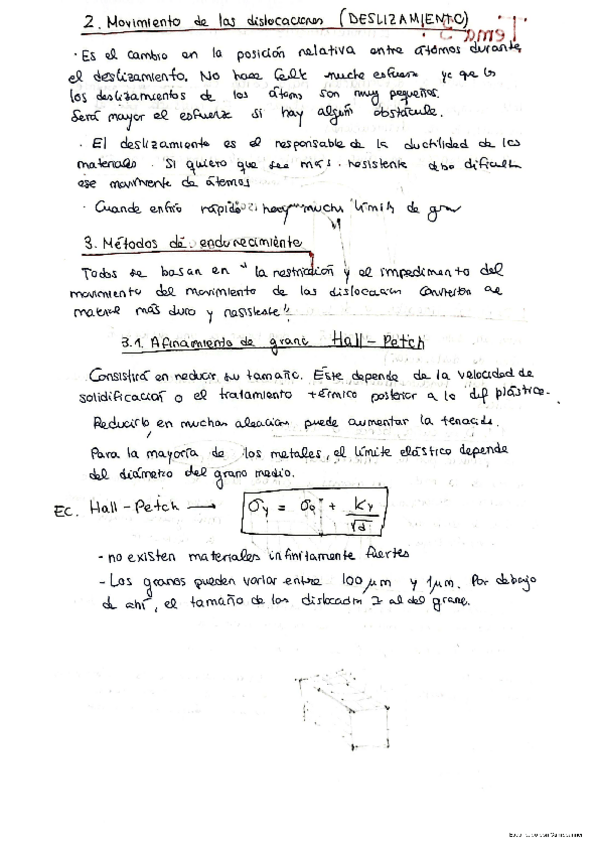 2. Movimiento de las dislocaciones (DESLIZAMIENTO)
· Es el cambio en la posición relativa entre átomos durante
el deslizamiento. No hace falta mucho esfuerzo ya que los
los deslizamientos de los átomos son muy pequeños.
Será mayor el esfuerzo si hay algún obstáculo.
· El deslizamiento es el responsable de la ductilidad de los
materiales. Si quiero que sea más resistente debo dificultar
ese movimiento de átomos
· Cuando enfrío rápido hay mucho límite de grano
3. Métodos de endurecimiento
Todos se basan en "la restricción y el impedimento del
movimiento del movimiento de las dislocación convierten
material más duro y resistente"
3.1. Afinamiento de grano Hall-Petch
Consistirá en reducir su tamaño. Éste depende de la velocidad de
solidificación o el tratamiento térmico posterior a la def plástica.
Reducirlo en muchas aleación puede aumentar la tenacidad.
Para la mayoría de los metales, el límite elástico depende
del diámetro del grano medio.
Ec. Hall-Petch → σy = σ0 + Ky/√d
- no existen materiales infinitamente fuertes
- Los granos pueden variar entre 100 μm y 1 μm. Por debajo
de ahí, el tamaño de las al del grano.